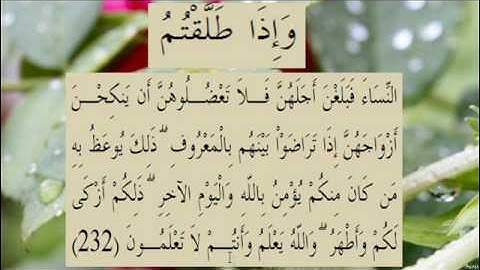 وَإِذَا طَلَّقْتُمُ
النِّسَاءَ فَبَلَغْنَ أَجَلَهُنَّ فَـلاَ تَعْضُلُوهُنَّ أَن يَنكِحْـنَ
أَزْوَاجَهُنَّ إِذَا تَرَاضَوْاْ بَيْنَهُم بِالْمَعْرُوفِ ۗ ذَلِكَ يُوعَظُ بِهِ
مَن كَانَ مِنكُمْ يُؤْمِنُ بِاللّهِ وَالْيَوْمِ الآخِرِ ۗ ذَلِكُمْ أَزْكَى
لَكُمْ وَأَطْهَرُ ۗ وَاللّهُ يَعْلَمُ وَأَنتُـــمْ لاَ تَعْلَمُـــونَ (232)